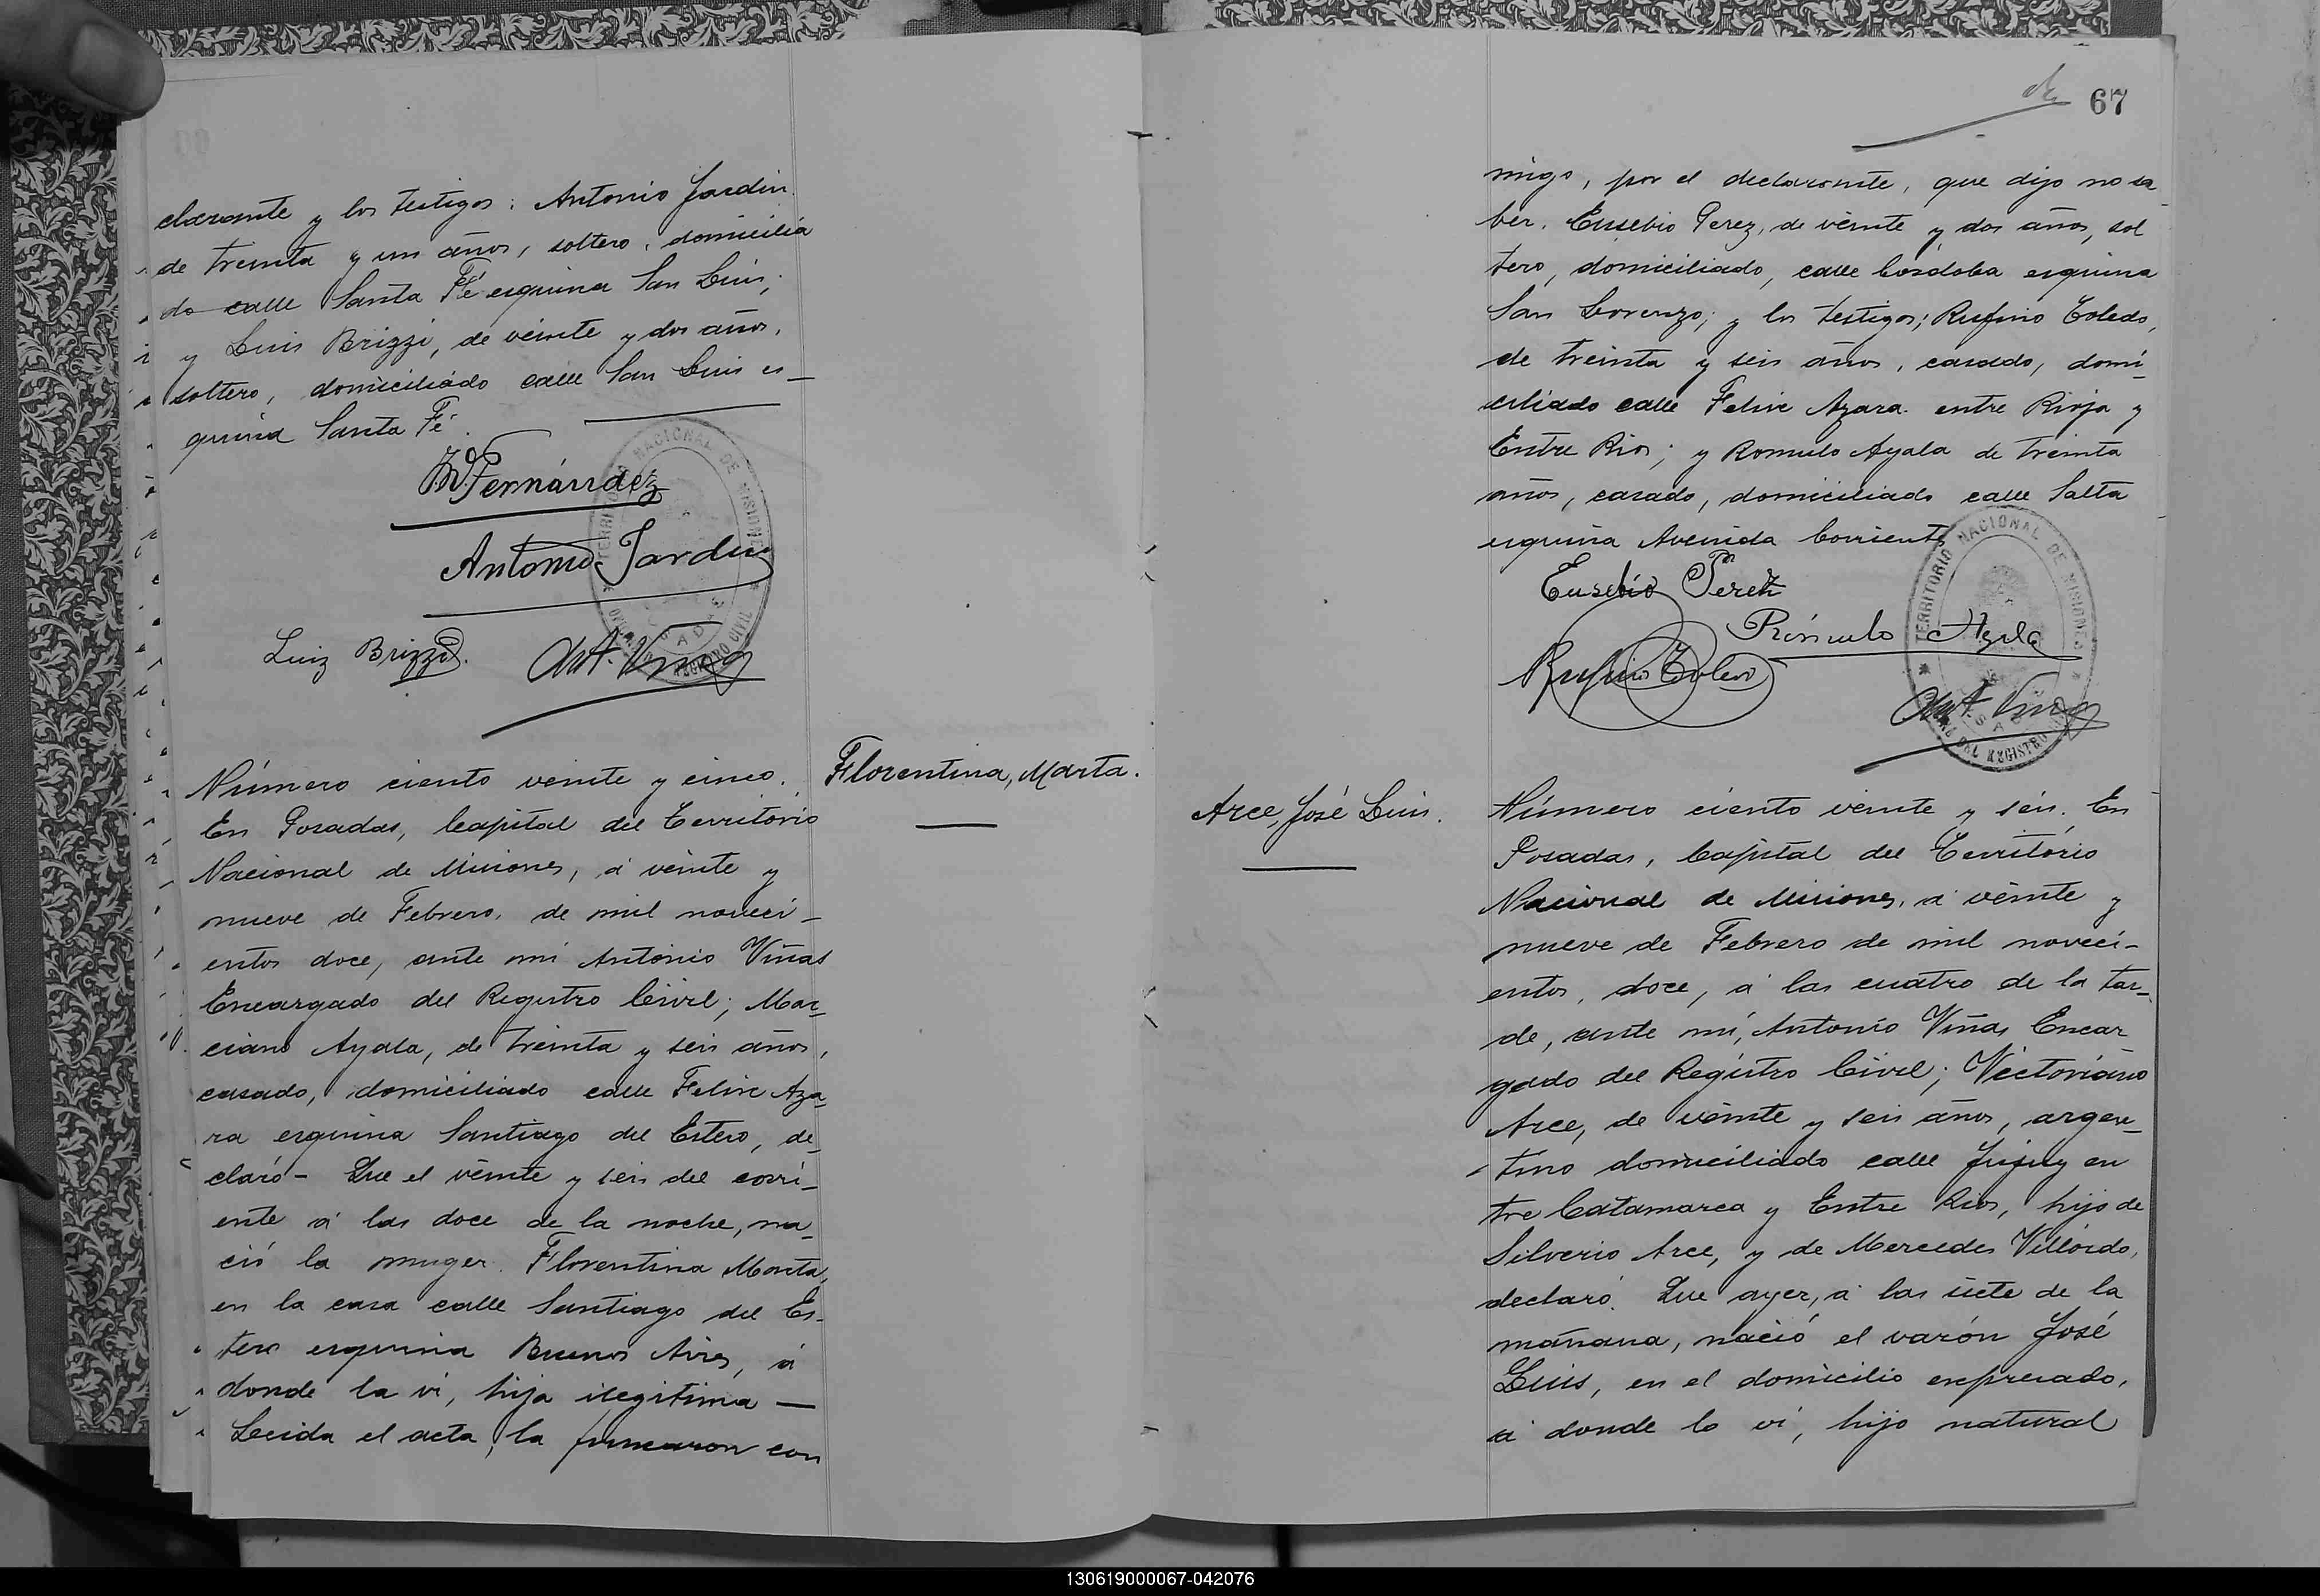 clarante y los testigos: Antonio Jardin
de treinta y un años, soltero, domicilia
do calle Santa Fé esquina San Luis,
y Luis Brizzi, de veinte y dos años,
soltero, domiciliado calle San Luis es_
quina Santa Fé.
Fernández
Antonio Jardin
TERRITORIO NACIONAL DE MISIONES
REGISTRO CIVIL
Luiz Brizzi.
Ant. Viñas
Número ciento veinte y cinco.
Florentina, Marta.
En Posadas, Capital del Territorio
Nacional de Misiones, á veinte y
nueve de Febrero, de mil noveci_
entos doce, ante mi Antonio Viñas
Encargado del Registro Civil; Mar_
ciano Ayala, de treinta y seis años,
casado, domiciliado calle Felix Aza_
ra esquina Santiago del Estero, de_
claró- Que el veinte y seis del corri_
ente á las doce de la noche, na_
ció la muger Florentina Marta,
en la casa calle Santiago del Es_
tero esquina Buenos Aires, á
donde la vi, hija ilegitima —
Leida el acta, la firmaron con
67
migo, por el declarante, que dijo no sa_
ber. Eusebio Perez, de veinte y dos años, sol
tero, domiciliado, calle Córdoba esquina
San Lorenzo; y los testigos; Rufino Toledo,
de treinta y seis años, casado, domi_
ciliado calle Felix Azara. entre Rioja y
Entre Rios; y Romulo Ayala de treinta
años, casado, domiciliado calle Salta
esquina Avenida Corrientes
Eusebio Perez
Rómulo Ayala
Rufino Toledo
Ant. Viñas
TERRITORIO NACIONAL DE MISIONES
OFICINA DEL REGISTRO CIVIL
Arce, José Luis.
Número ciento veinte y seis. En
Posadas, Capital del Territorio
Nacional de Misiones, á veinte y
nueve de Febrero de mil noveci-
entos, doce, á las cuatro de la tar_
de, ante mi, Antonio Viñas Encar
gado del Registro Civil; Victoriano
Arce, de veinte y seis años, argen_
tino domiciliado calle Jujuy en
tre Catamarca y Entre Rios, hijo de
Silverio Arce, y de Mercedes Villordo,
declaró. Que ayer, á las siete de la
mañana, nació el varón José
Luis, en el domicilio expresado,
á donde lo vi, hijo natural
130619000067-042076